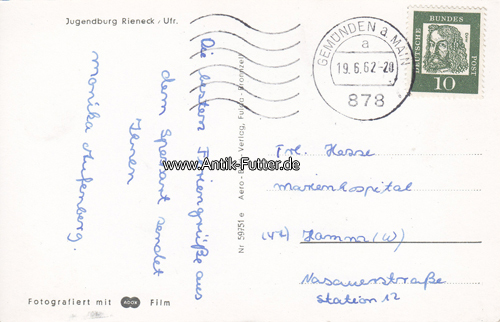 Jugendburg Rieneck / Ufr.
Die besten Feriengrüße aus
dem Spessart sendet
Ihnen
Monika
Fotografiert mit ADOX Film
Nr 59751 e Aero-Bild Verlag, Fulda-Bronnzell
GEMÜNDEN a MAIN
a
19.6.62-20
878
DEUTSCHE BUNDESPOST
10
www.Antik-Futter.de
Frl. Hesse
Marienhospital
Hamm (W)
Nasauerstraße
Station 12